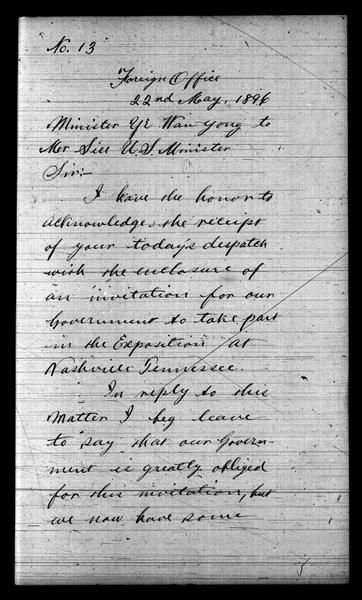 No. 13
Foreign Office
22nd May, 1896
Minister Ye Wan Yong to
Mr Sill U.S. Minister
Sir:-
I have the honor to
acknowledge the receipt
of your today's despatch
with the enclosure of
an invitation for our
Government to take part
in the Exposition at
Nashville Tennessee.
In reply to this
Matter I beg leave
to say that our Govern-
ment is greatly obliged
for this invitation, but
we now have some